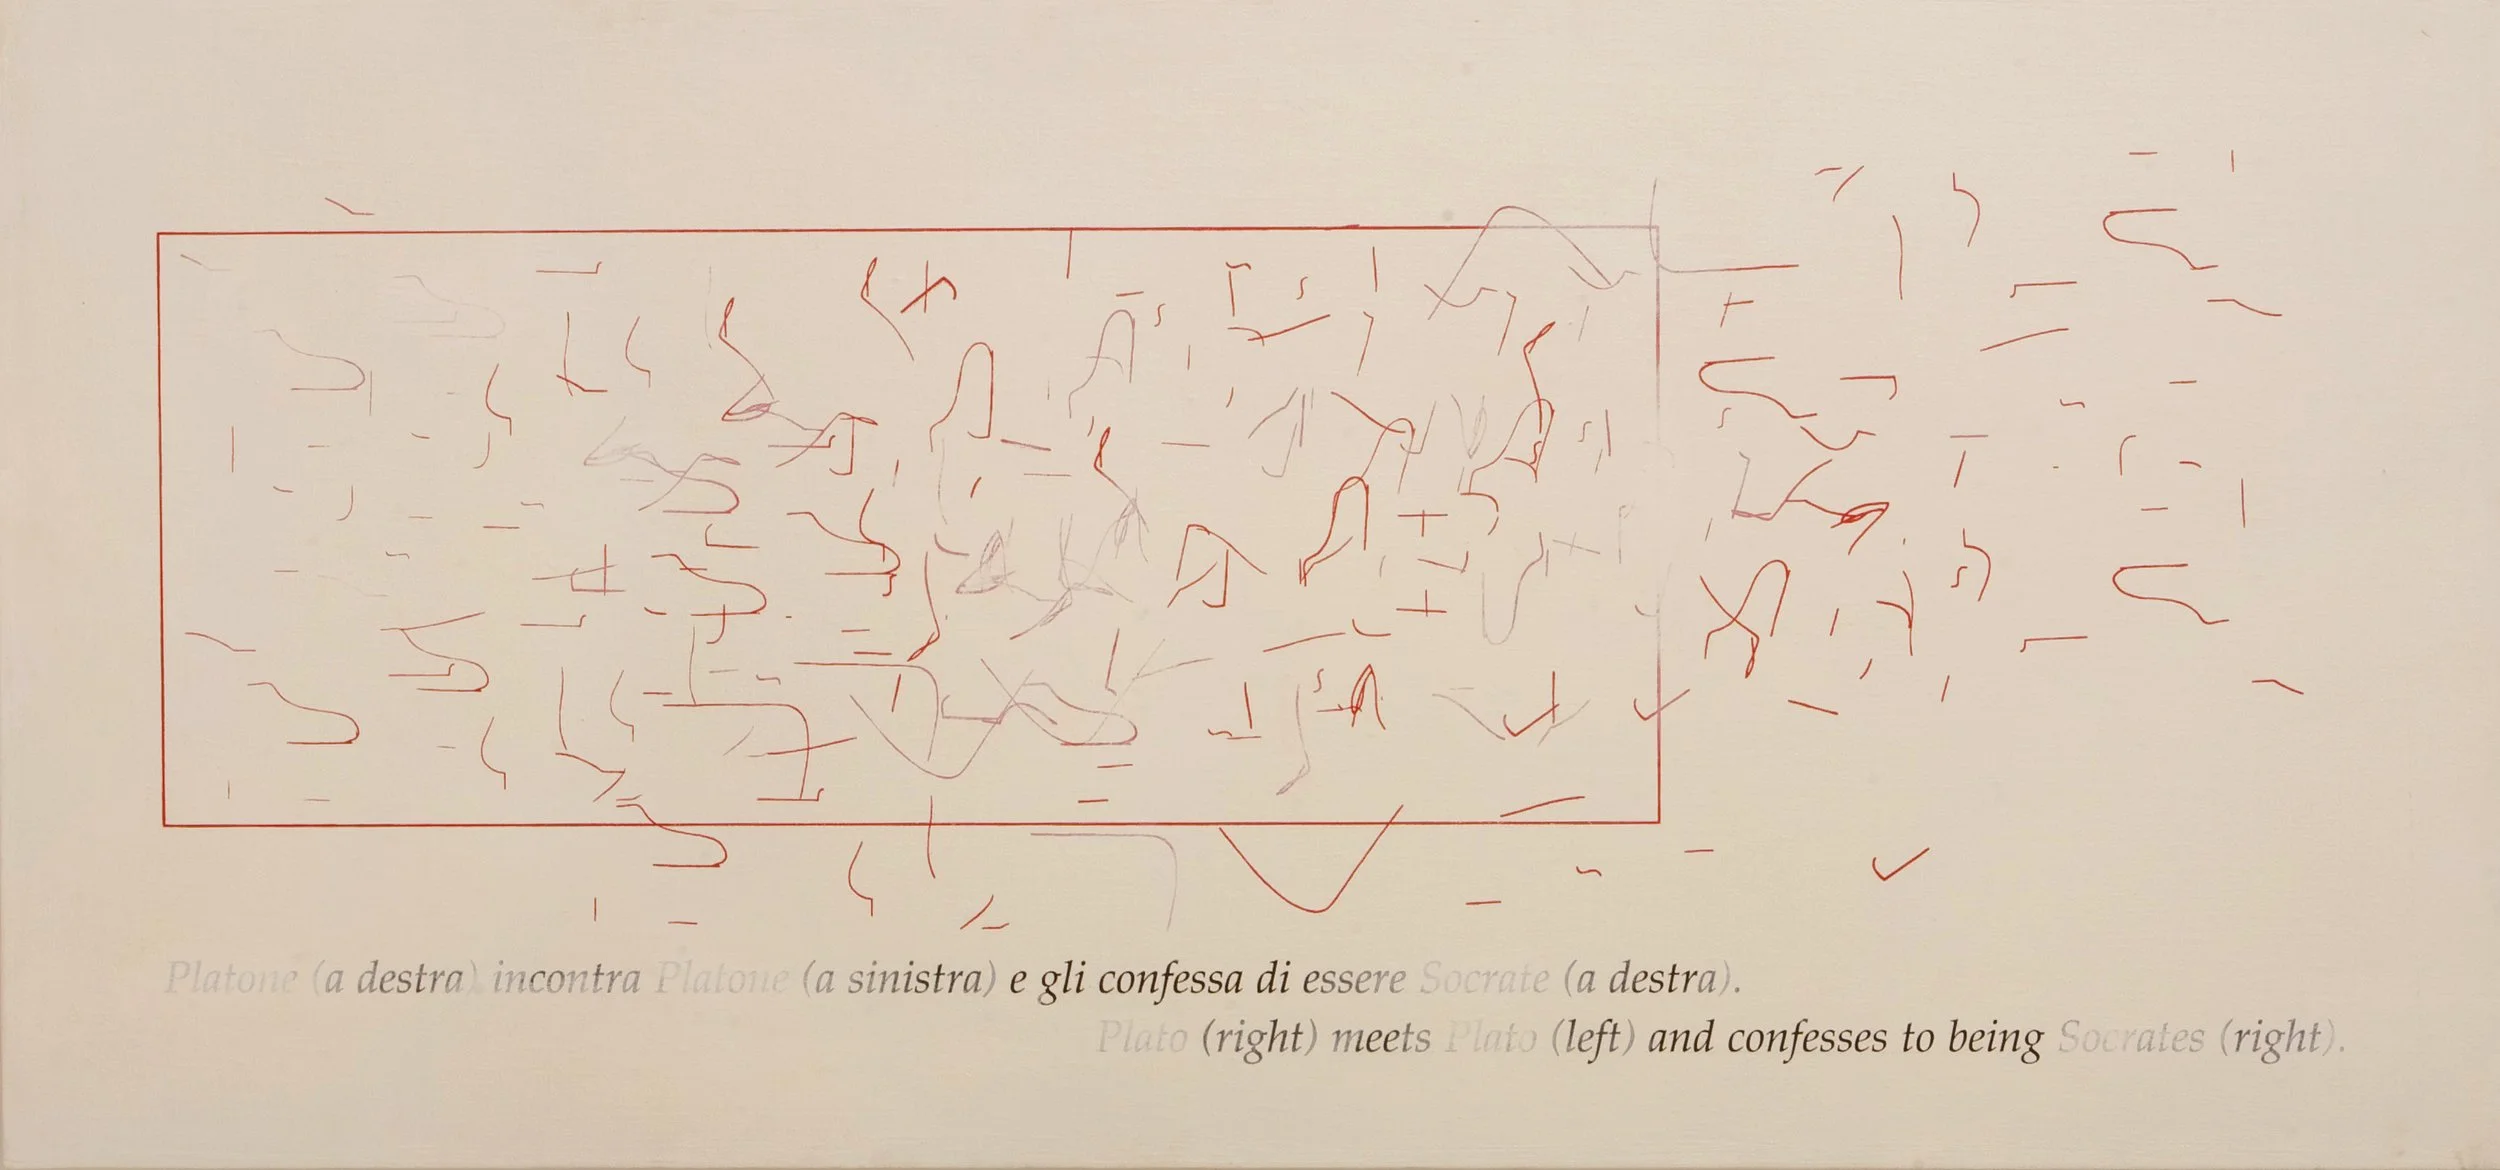 Platone (a destra) incontra Platone (a sinistra) e gli confessa di essere Socrate (a destra).
Plato (right) meets Plato (left) and confesses to being Socrates (right).